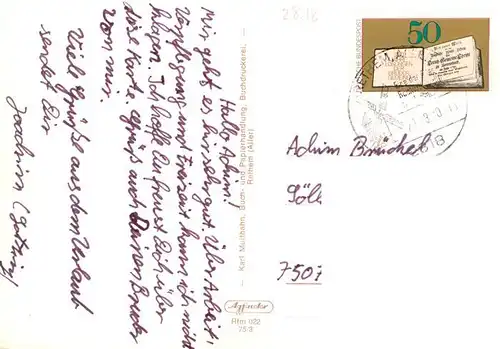 28.18
Hallo Achim!
Mir geht es hier sehr gut. Über Arbeit,
Verpflegung und Freizeit kann ich nicht
klagen. Ich hoffe Du freust Dich über
diese Karte. Grüß auch Deinen Bruder
von mir.
Viele Grüße aus dem Urlaub
sendet Dir
Joachim
— Karl Mühlhahn, Buch- und Papierhandlung, Buchdruckerei,
Rethem (Aller)
Rtm 822
75/3
50
DEUTSCHE BUNDESPOST
Achim Brückel
7507